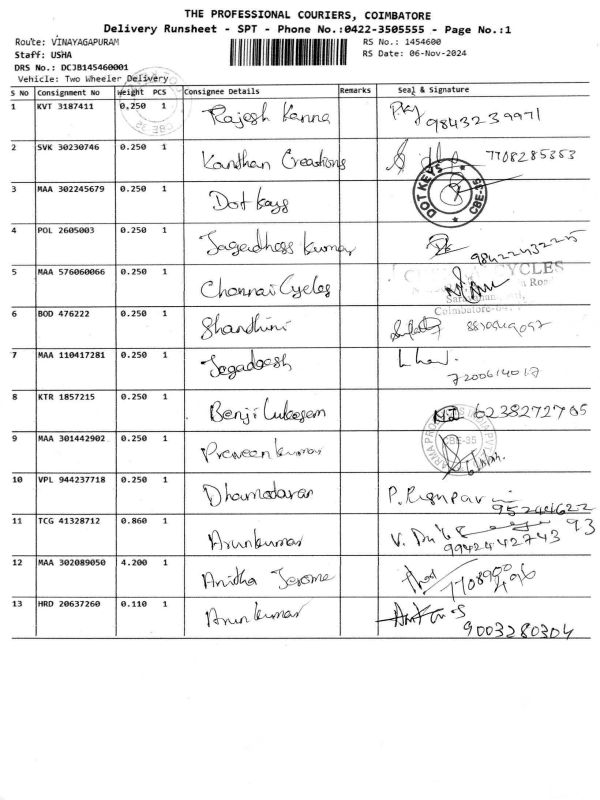 THE PROFESSIONAL COURIERS, COIMBATORE
Delivery Runsheet - SPT - Phone No.:0422-3505555 - Page No.:1
Route: VINAYAGAPURAM RS No.: 1454600
Staff: USHA RS Date: 06-Nov-2024
DRS No.: DCJB145460001
Vehicle: Two Wheeler Delivery
S No Consignment No Weight PCS Consignee Details Remarks Seal & Signature
1 KVT 3187411 0.250 1 Rajesh Kanna 9843239971
2 SVK 30230746 0.250 1 Kandhan Creations 7708285353
3 MAA 302245679 0.250 1 Dot Kays DOT KEYS CBE-35
4 POL 2605003 0.250 1 Jagadhess Kumar 9842243225
5 MAA 576060066 0.250 1 Chennai Cycles CYCLES
Road
Coimbatore
6 BOD 476222 0.250 1 Shandhini
7 MAA 110417281 0.250 1 Jagadeesh
7200614017
8 KTR 1857215 0.250 1 Benji 6238272705
9 MAA 301442902 0.250 1 Praveen Kumar CBE-35
10 VPL 944237718 0.250 1 Dhamodaran P.
95244622
93
11 TCG 41328712 0.860 1 Arunkumar V.
9942442743
12 MAA 302089050 4.200 1 Anitha Jerome 7708900
496
13 HRD 20637260 0.110 1 Arunkumar
9003280304